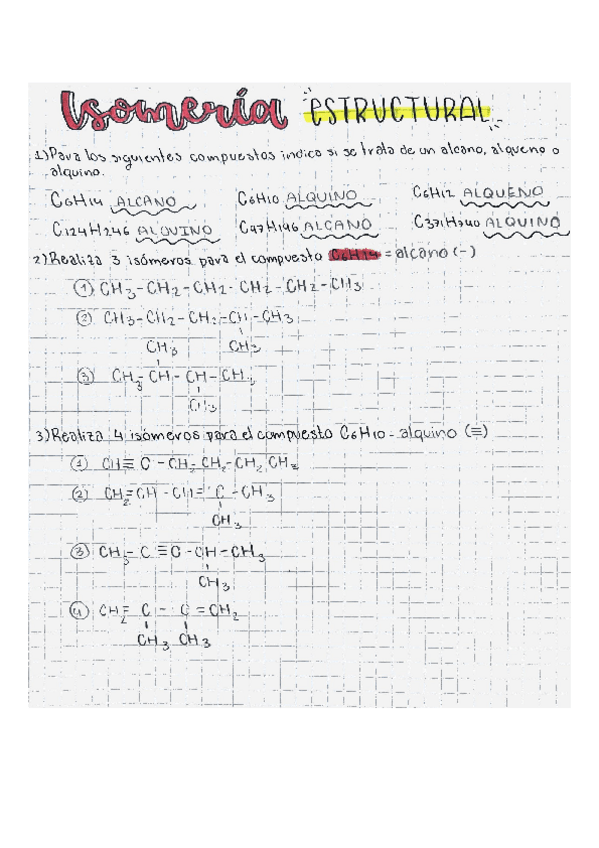 Isomería ESTRUCTURAL
1) Para los siguientes compuestos indica si se trata de un alcano, alqueno o
alquino.
C6H14 ALCANO C6H10 ALQUINO C6H12 ALQUENO
C124H246 ALQUINO C97H196 ALCANO C371H740 ALQUINO
2) Realiza 3 isómeros para el compuesto C6H14 = alcano (-)
① CH3-CH2-CH2-CH2-CH2-CH3
② CH3-CH2-CH2-CH-CH3
CH3 CH3
③ CH3-CH-CH-CH3
CH3
3) Realiza 4 isómeros para el compuesto C6H10 - alquino (≡)
① CH≡C-CH2-CH2-CH2 CH3
② CH2=CH-CH=C-CH3
CH3
③ CH3-C≡C-CH-CH3
CH3
④ CH2=C-C=CH2
CH3 CH3